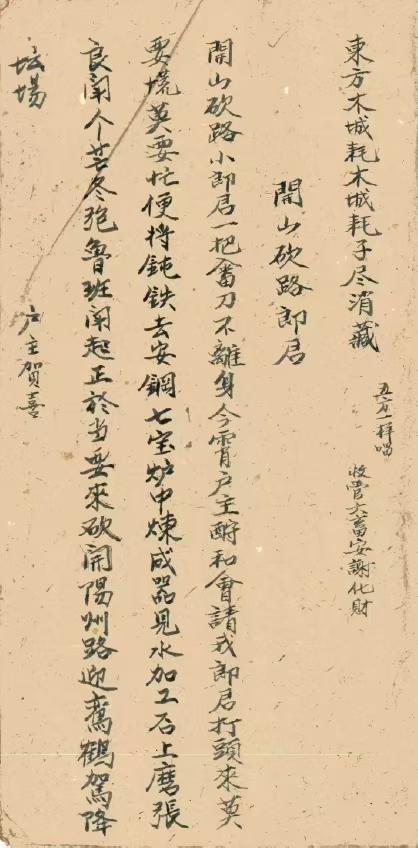 東方木城耗木城耗子尽消藏
五方一样唱
收管六畜安謝化財
開山砍路郎君
開山砍路小郎君一把畬刀不離身今霄户主酧和會請我郎君打頭來莫
要慌莫要忙便将鈍鉄去安鋼七宝炉中煉成器見水加工石上磨張
良開个苦冬 魯班開起正於当要來砍開陽州路迎鸞鶴駕降
坛場
户主賀喜